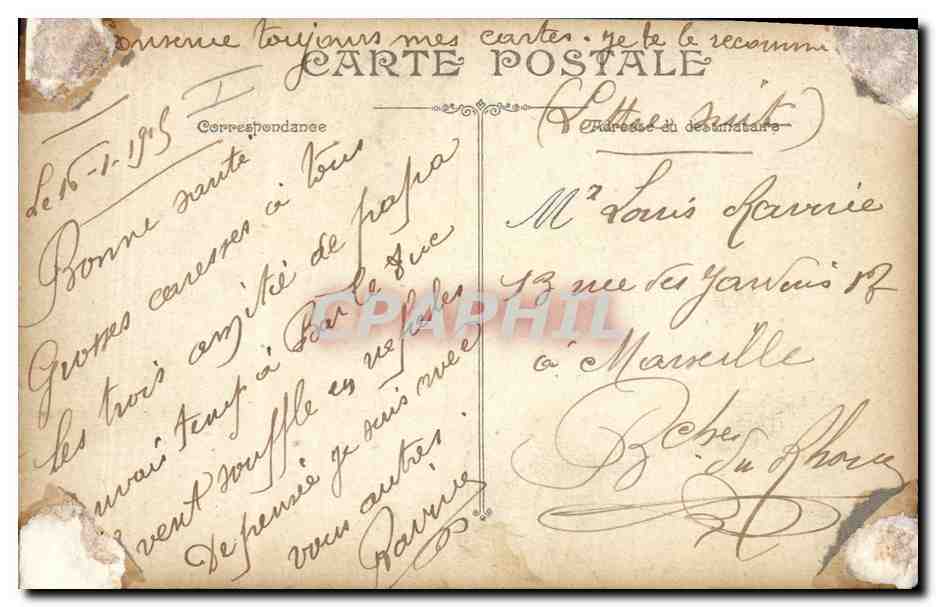 Conserve toujours mes cartes. je te le recomme
CARTE POSTALE
Correspondance
(Lettre suit)
Adresse du destinataire
Le 16-1-1915
Bonne santé
Grosses caresses à tous
les trois amitié de papa
mauvais temps à Bar le Duc
vent souffle en
De pensée je suis avec
vous autres
Ravrie
Mr Louis Ravrie
13 rue des Jardins
à Marseille
Bches du Rhone
CPAPHIL